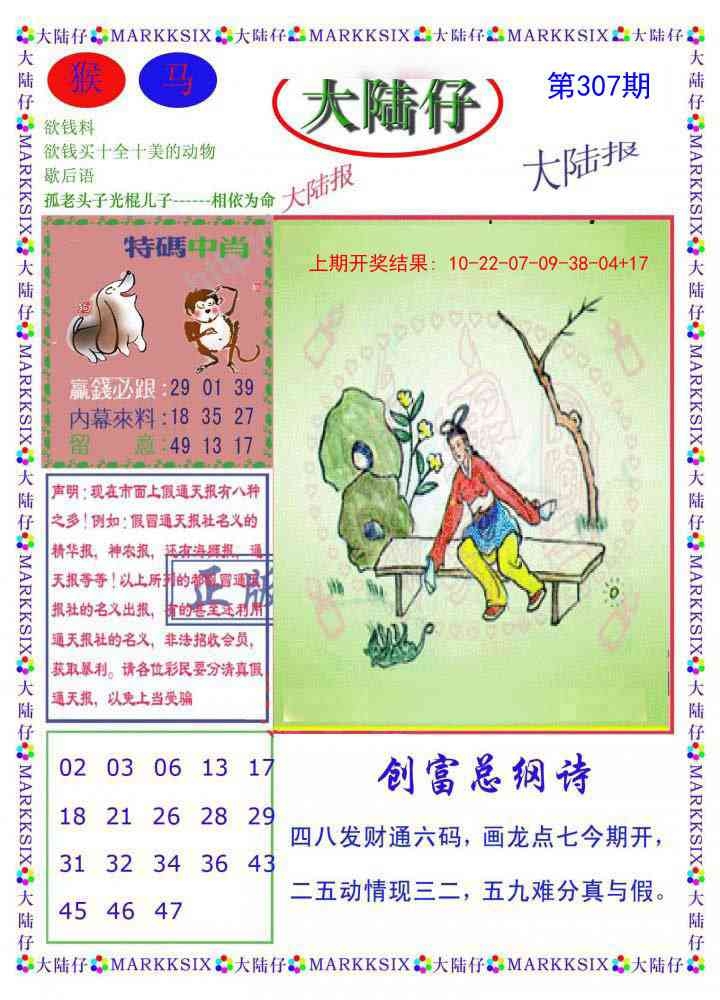 大陆仔 MARKKSIX 大陆仔 MARKKSIX 大陆仔 MARKKSIX 大陆仔
猴 马
大陆仔
第307期
欲钱料
欲钱买十全十美的动物
歇后语
孤老头子光棍儿子------相依为命
大陆报
大陆报
特碼中肖
赢錢必跟:29 01 39
内幕來料:18 35 27
留 意:49 13 17
上期开奖结果: 10-22-07-09-38-04+17
声明:现在市面上假通天报有八种
之多!例如:假冒通天报社名义的
精华报,神农报,还有海狮报,通
天报等等!以上所列的都假冒通天
报社的名义出报,有的甚至还利用
通天报社的名义,非法招收会员,
获取暴利。请各位彩民要分清真假
通天报,以免上当受骗
正版
02 03 06 13 17
18 21 26 28 29
31 32 34 36 43
45 46 47
创富总纲诗
四八发财通六码,画龙点七今期开,
二五动情现三二,五九难分真与假。
大陆仔 MARKKSIX 大陆仔 MARKKSIX 大陆仔 MARKKSIX 大陆仔 MARKKSIX 大陆仔